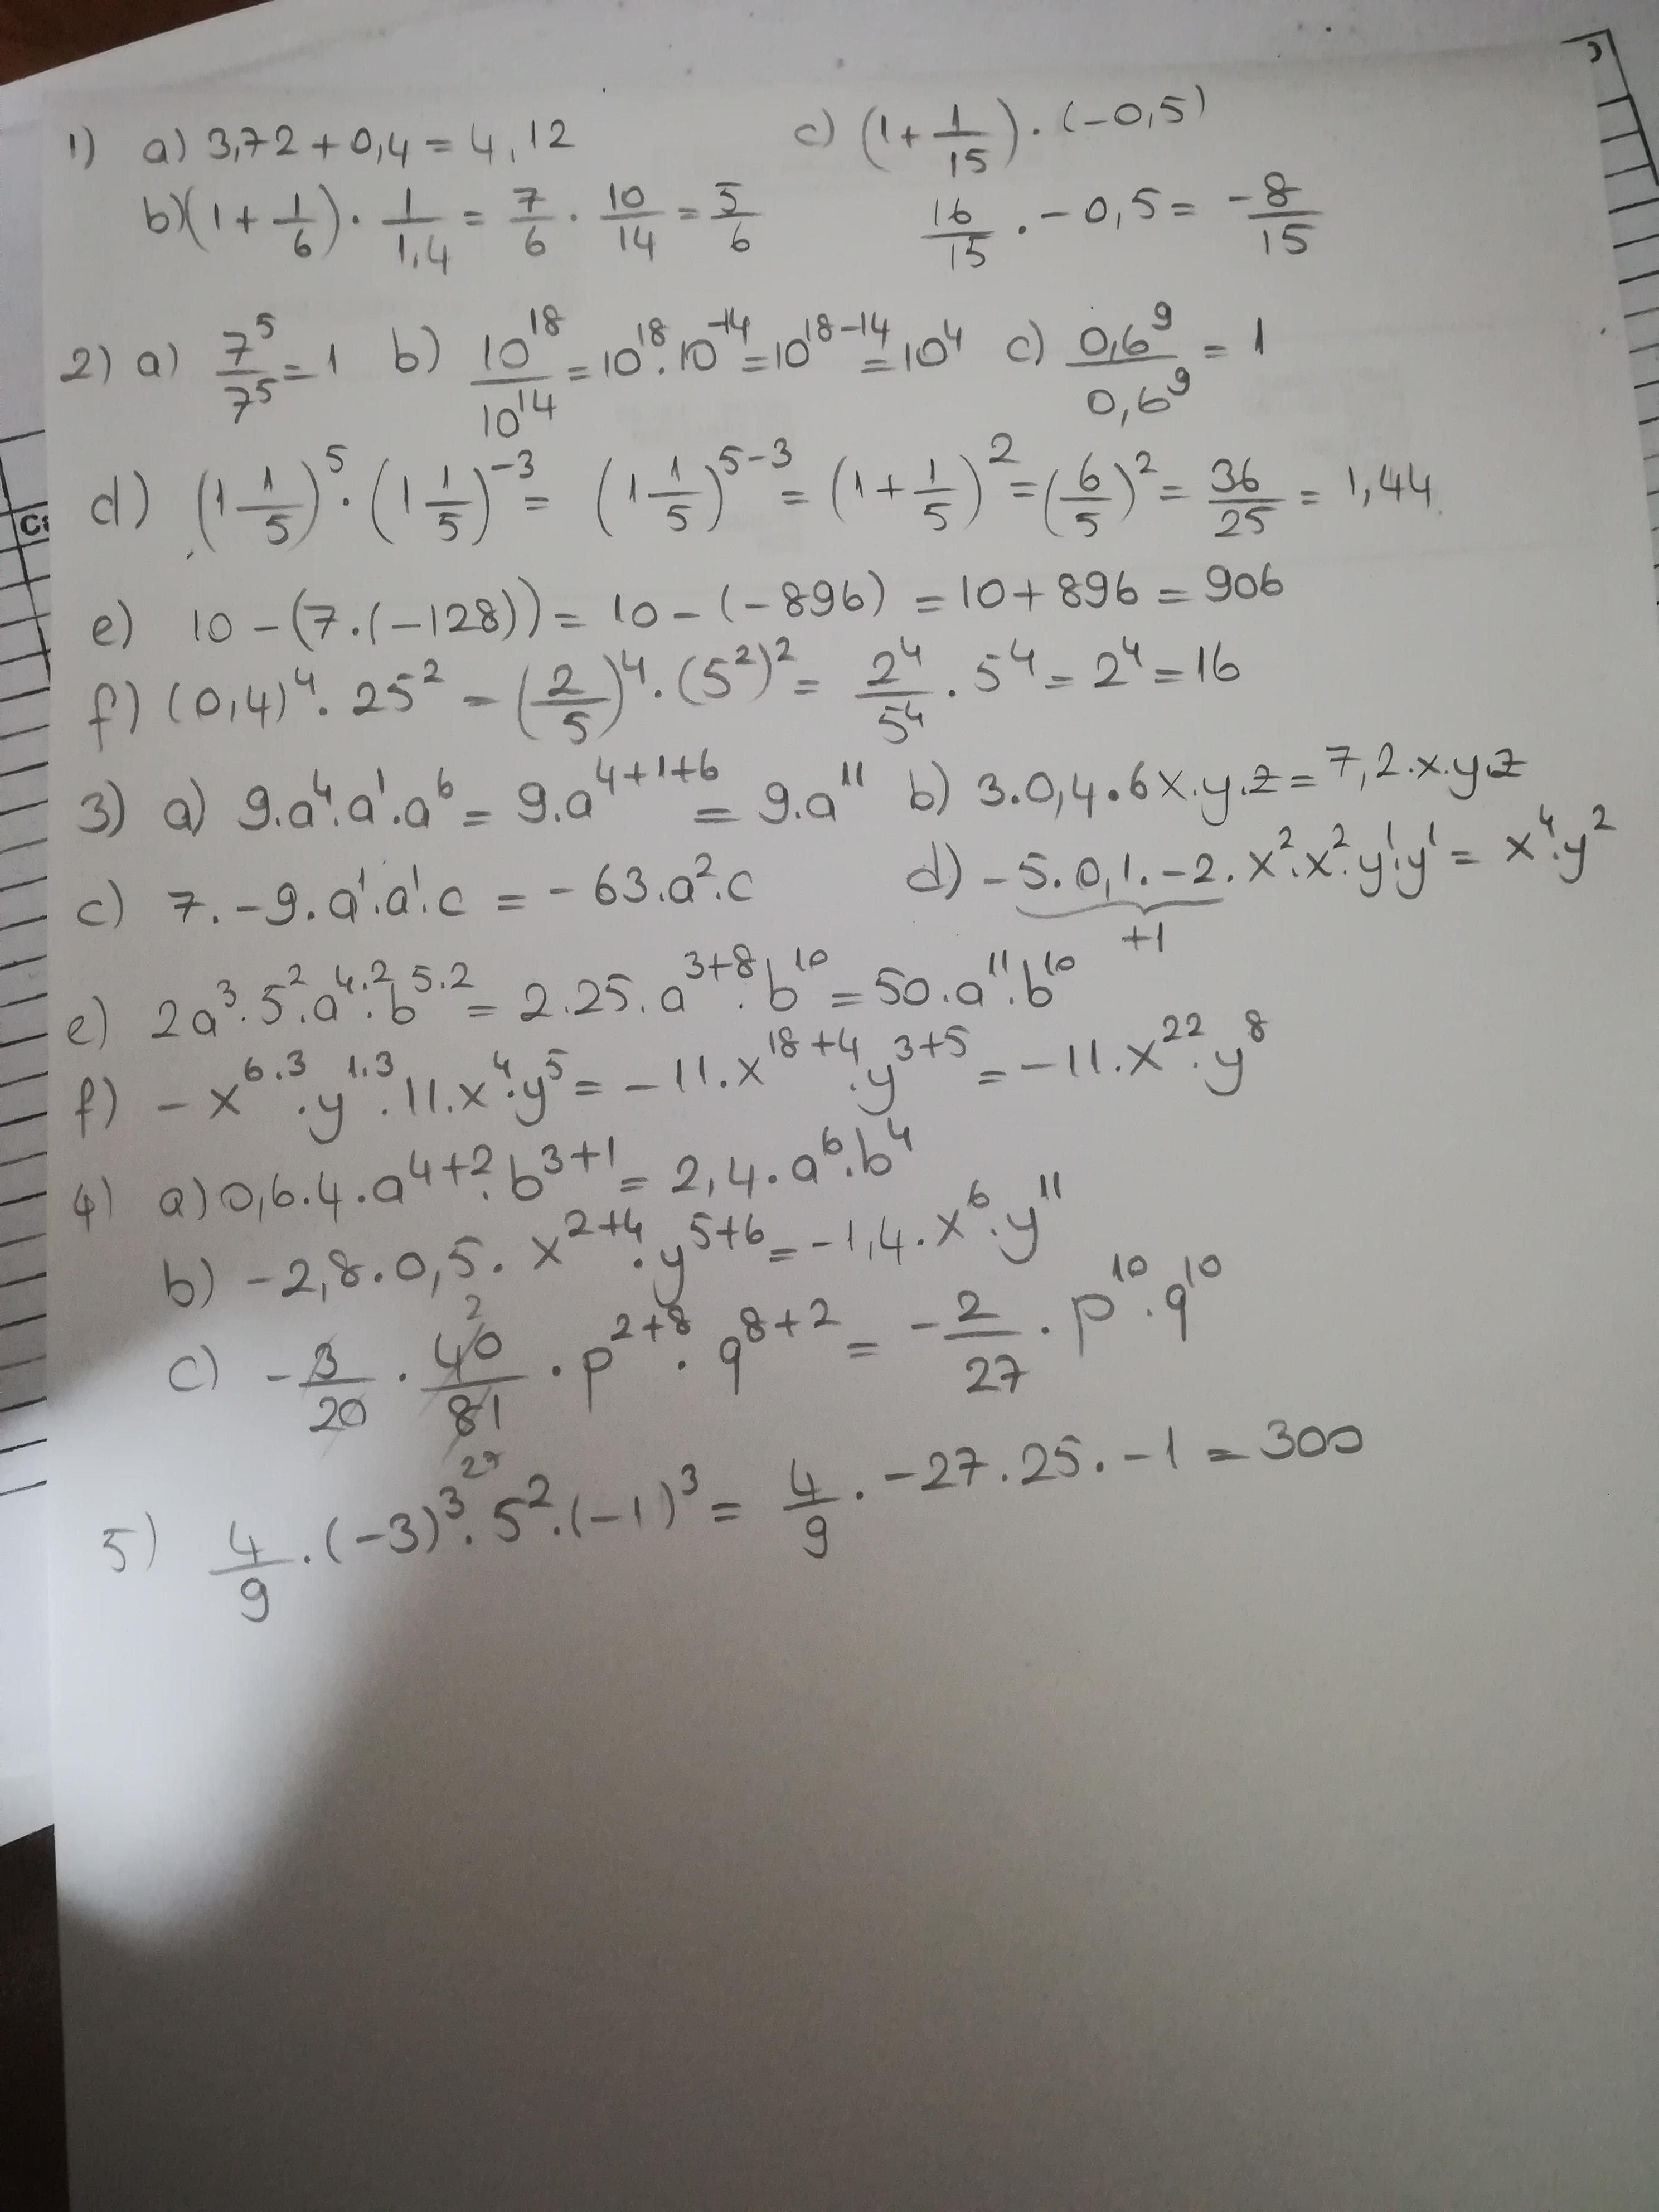 1) a) 3,72 + 0,4 = 4,12 c) (1 + 1/15) · (-0,5)
b) (1 + 1/6) · 1/1,4 = 7/6 · 10/14 = 5/6 16/15 · -0,5 = -8/15
2) a) 7⁵/7⁵ = 1 b) 10¹⁸/10¹⁴ = 10¹⁸·10⁻¹⁴ = 10¹⁸⁻¹⁴ = 10⁴ c) 0,6⁹/0,6⁹ = 1
d) (1 1/5)⁵ · (1 1/5)⁻³ = (1 1/5)⁵⁻³ = (1 + 1/5)² = (6/5)² = 36/25 = 1,44
e) 10 - (7·(-128)) = 10 - (-896) = 10 + 896 = 906
f) (0,4)⁴ · 25² = (2/5)⁴ · (5²)² = 2⁴/5⁴ · 5⁴ = 2⁴ = 16
3) a) 9·a⁴·a¹·a⁶ = 9·a⁴⁺¹⁺⁶ = 9·a¹¹ b) 3·0,4·6x·y·z = 7,2·x·y·z
c) 7·-9·a¹·a¹·c = -63·a²·c d) -5·0,1·-2·x²·x²·y¹·y¹ = x⁴·y²
+1
e) 2a³·5²·a^4·2·b^5·2 = 2·25·a³⁺⁸·b¹⁰ = 50·a¹¹·b¹⁰
f) -x^6·3·y^1·3·11·x⁴·y⁵ = -11·x¹⁸⁺⁴·y³⁺⁵ = -11·x²²·y⁸
4) a) 0,6·4·a⁴⁺²·b³⁺¹ = 2,4·a⁶·b⁴
b) -2,8·0,5·x²⁺⁴·y⁵⁺⁶ = -1,4·x⁶·y¹¹
2
c) -3/20 · 40/81 · p²⁺⁸ · q⁸⁺² = -2/27 · p¹⁰·q¹⁰
27
5) 4/9 · (-3)³·5²·(-1)³ = 4/9 · -27·25·-1 = 300